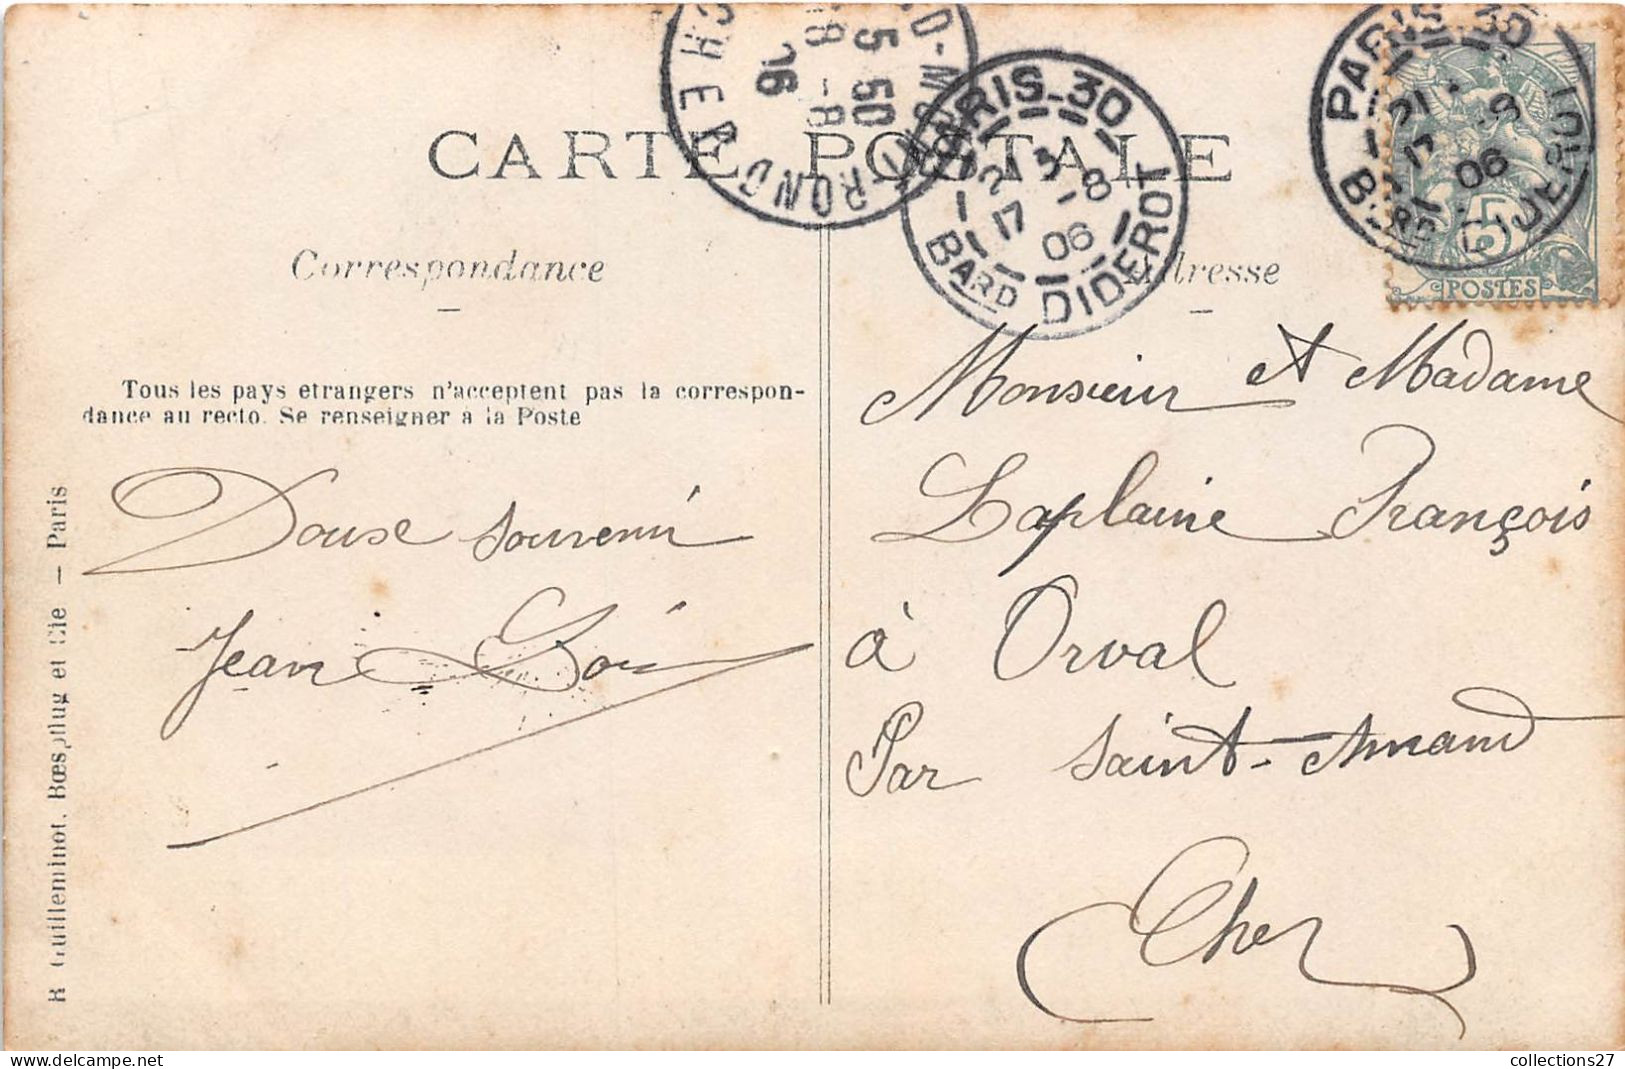 CARTE POSTALE
Correspondance
Adresse
Tous les pays etrangers n'acceptent pas la correspon-
dance au recto. Se renseigner à la Poste
Douse souvenir
Jean
Monsieur et Madame
Laplaine François
à Orval
Par Saint-Amand
Cher
R. Guilleminot, Bœspflug et Cie — Paris
PARIS-30
21
17 -8
06
BARD DIDEROT
PARIS-30
21 -8
17
06
BARD DIDEROT
5 50
18 -8
06
CHER
5
POSTES
collections27